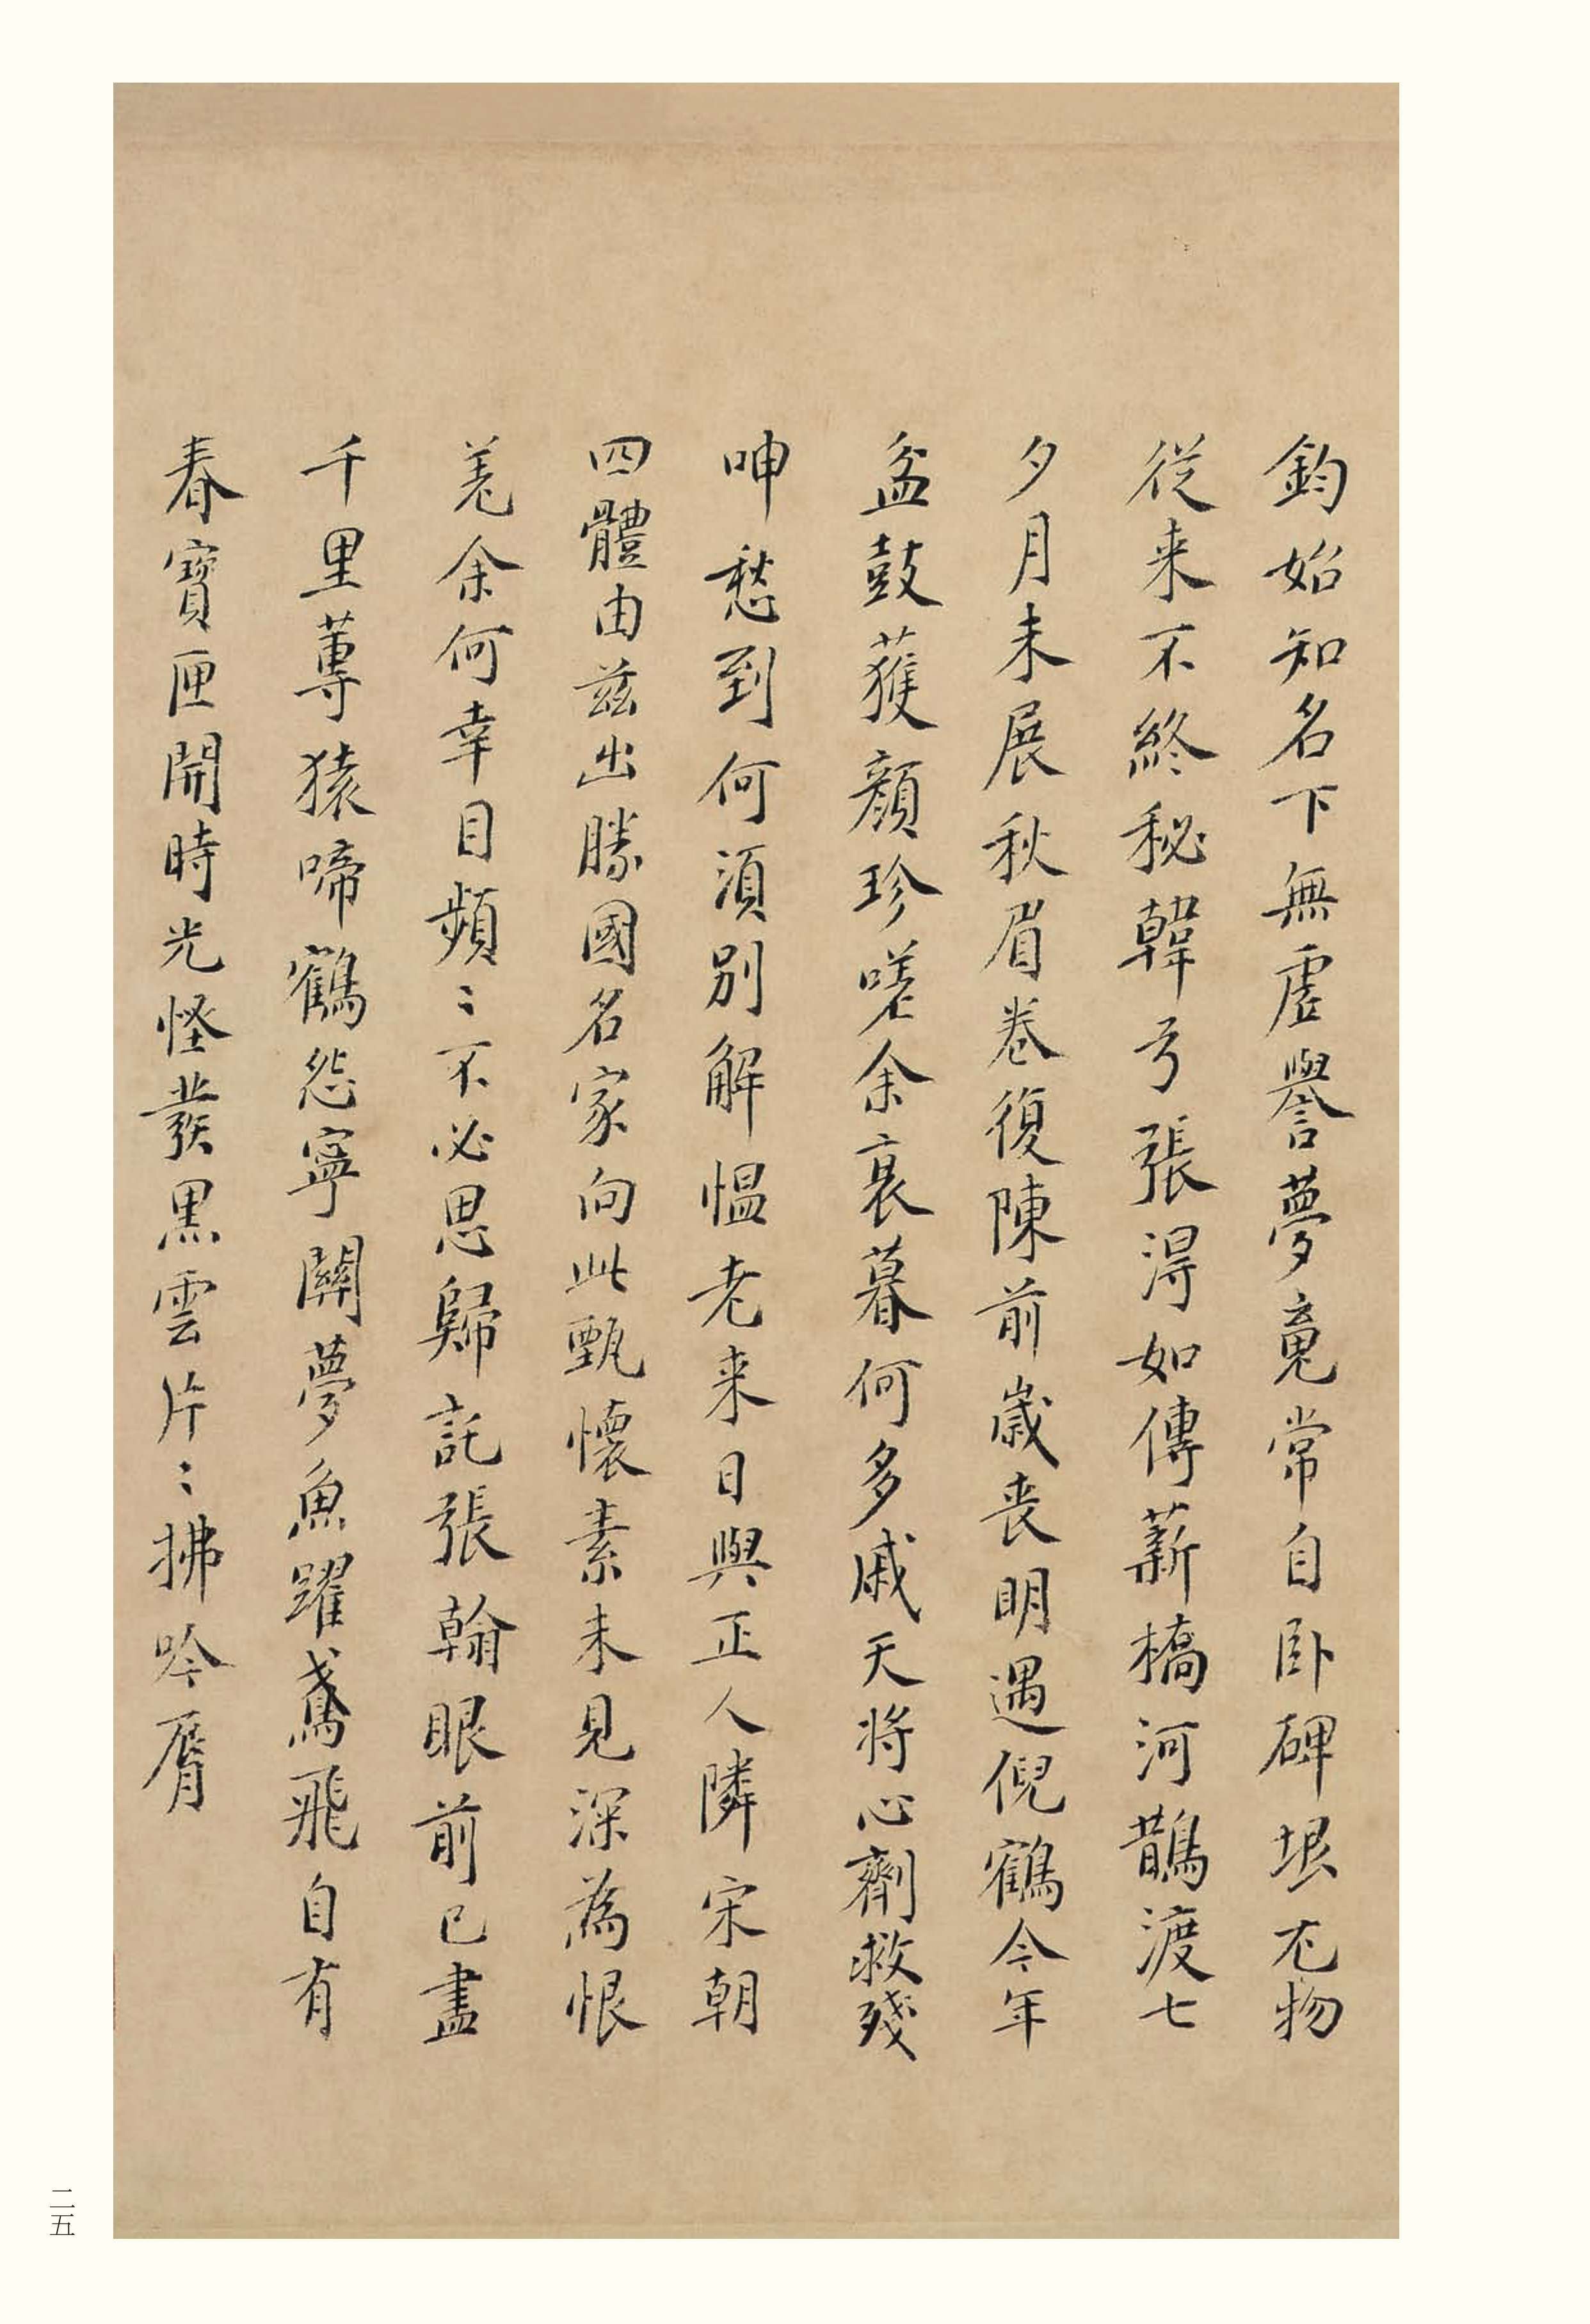 鈞始知名下無虛譽夢竟常自卧碑垠尤物
從来不終秘韓弓張淂如傳薪橋河鵲渡七
夕月未展秋眉卷復陳前歲丧明遇倪鶴今年
盆鼓獲顏珍嗟余衰暮何多戚天將心劑救殘
呻愁到何須別解愠老来日與正人隣宋朝
四體由兹出勝國名家向此甄懷素未見深為恨
羗余何幸目頻〻不必思歸託張翰眼前已盡
千里蓴猿啼鶴怨寧關夢魚躍鳶飛自有
春寶匣開時光怪發黑雲片〻拂吟脣
二五